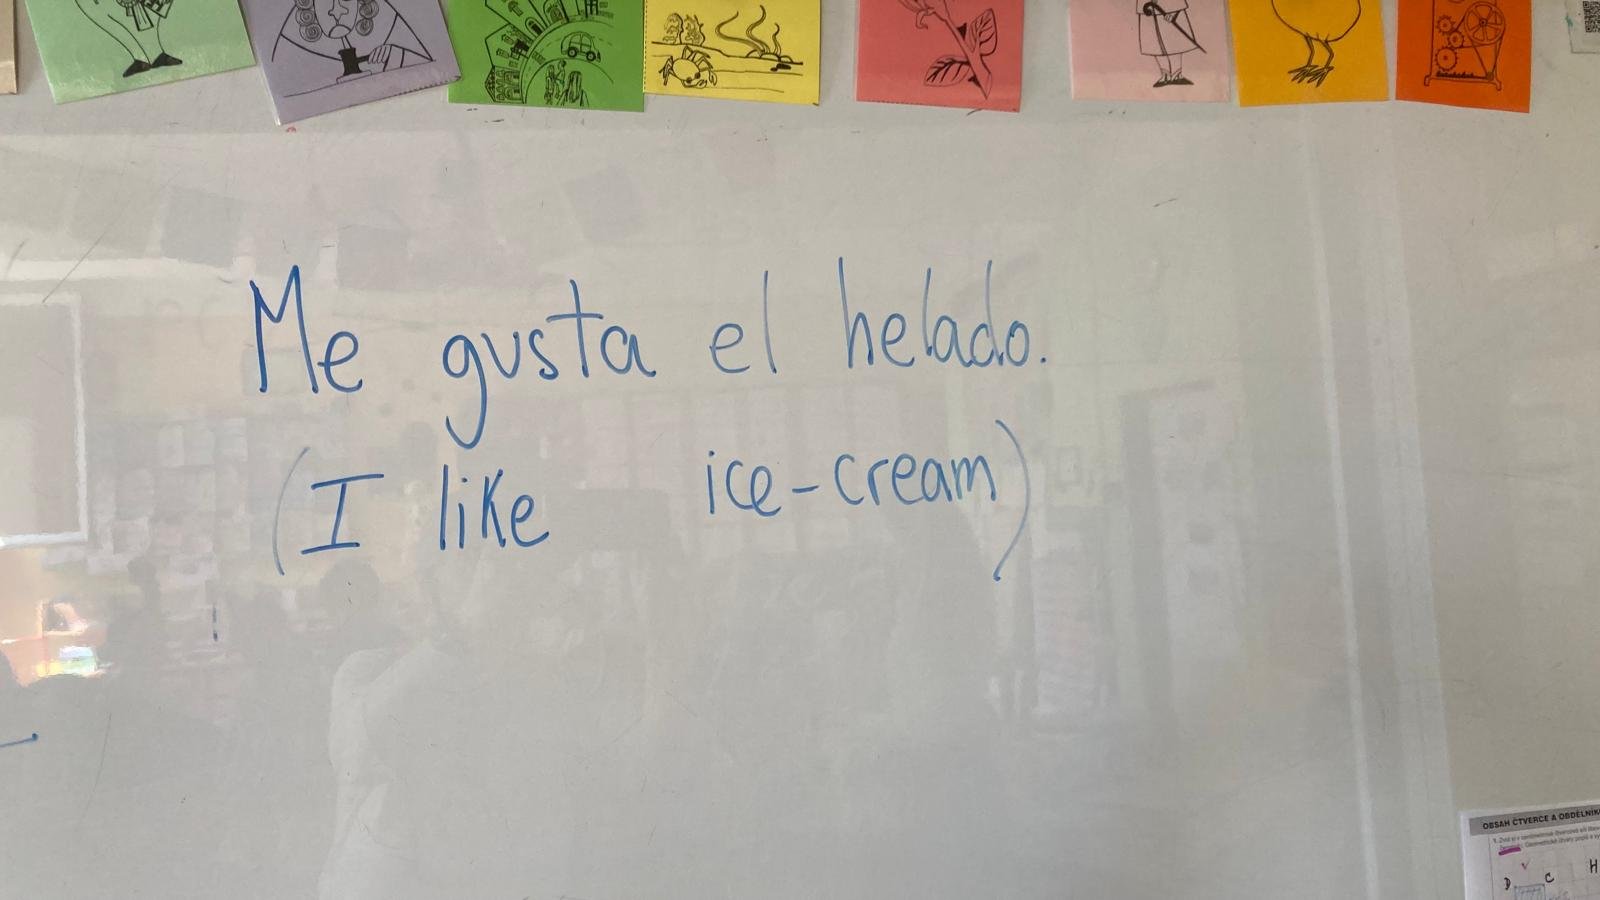 Me gusta el helado.
(I like ice-cream)
OBSAH ČTVERCE A OBDÉLNÍK
D
C
H